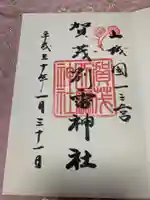 山城国一之宮
賀茂別雷神社
平成三十年一月三十一日